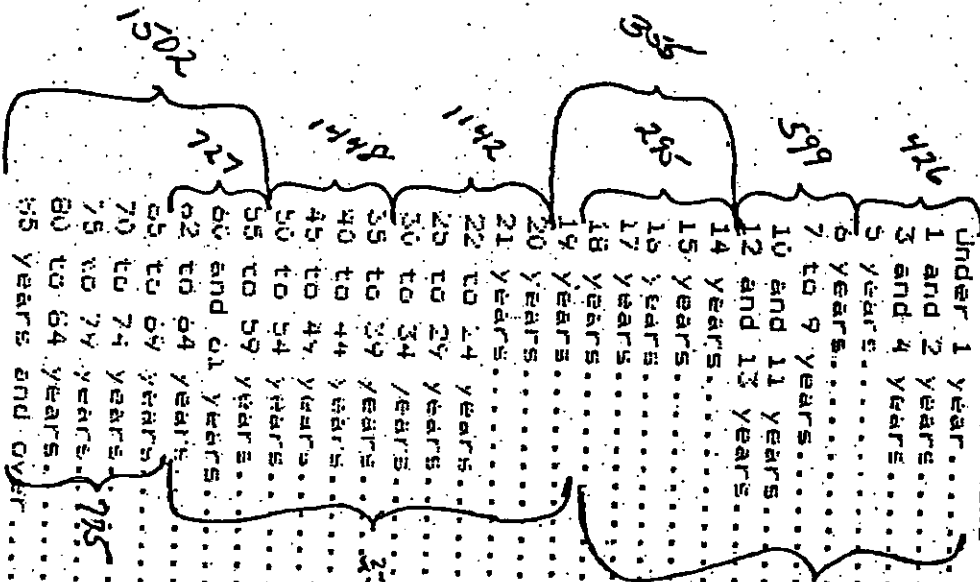 Under 1 year
1 and 2 years
3 and 4 years
5 years
6 years
7 to 9 years
10 and 11 years
12 and 13 years
14 years
15 years
16 years
17 years
18 years
19 years
20 years
21 years
22 to 24 years
25 to 29 years
30 to 34 years
35 to 39 years
40 to 44 years
45 to 49 years
50 to 54 years
55 to 59 years
60 and 61 years
62 to 64 years
65 to 69 years
70 to 74 years
75 to 79 years
80 to 84 years
85 years and over
426
599
295
1142
1448
727
1502
775